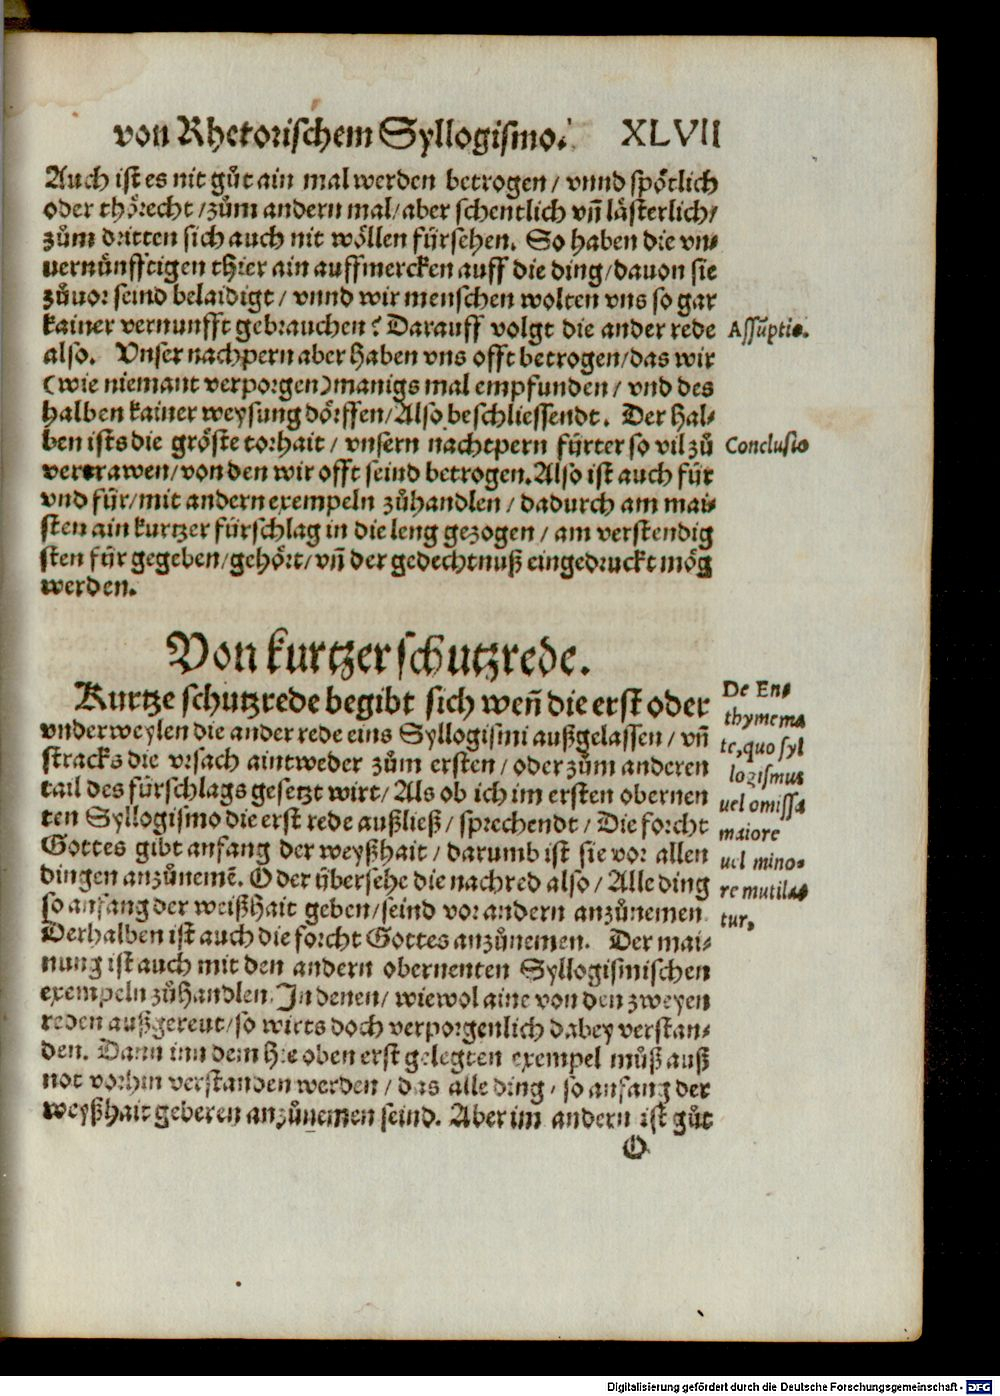 von Rhetorischem Syllogismo. XLVII
Auch ist es nit gůt ain mal werden betrogen / vnnd spoͤtlich
oder thoͤrecht / zům andern mal / aber schentlich vñ laͤsterlich /
zům dritten sich auch nit woͤllen fürsehen. So haben die vn⸗
uernünfftigen thier ain auffmercken auff die ding / dauon sie
zůuor seind belaidigt / vnnd wir menschen wolten vns so gar
kainer vernunfft gebrauchen? Darauff volgt die ander rede
Assũptio.
also. Vnser nachpern aber haben vns offt betrogen / das wir
(wie niemant verporgen) manigs mal empfunden / vnd des
halben kainer weysung doͤrffen / Also beschliessendt. Der hal⸗
ben ists die groͤste torhait / vnsern nachtpern fürter so vil zů
Conclusio
vertrawen / von den wir offt seind betrogen. Also ist auch für
vnd für / mit andern exempeln zůhandlen / dadurch am mai⸗
sten ain kurtzer fürschlag in die leng gezogen / am verstendig
sten für gegeben / gehoͤrt / vñ der gedechtnuß eingedruckt moͤg
werden.
Von kurtzer schutzrede.
Kurtze schutzrede begibt sich weñ die erst oder
vnderweylen die ander rede eins Syllogismi außgelassen / vñ
stracks die vrsach aintweder zům ersten / oder zům anderen
tail des fürschlags gesetzt wirt / Als ob ich im ersten obernen
ten Syllogismo die erst rede außließ / sprechendt / Die forcht
Gottes gibt anfang der weyßhait / darumb ist sie vor allen
dingen anzůnemẽ. Oder übersehe die nachred also / Alle ding
so anfang der weißhait geben / seind vor andern anzůnemen
Derhalben ist auch die forcht Gottes anzůnemen. Der mai⸗
nung ist auch mit den andern obernenten Syllogismischen
exempeln zůhandlen. In denen / wiewol aine von den zweyen
reden außgereut / so wirts doch verporgenlich dabey verstan⸗
den. Dann inn dem hie oben erst gelegten exempel můß auß
not vorhin verstanden werden / das alle ding / so anfang der
weyßhait geberen anzůnemen seind. Aber im andern ist gůt
De En⸗
thymema
te, quo syl
logismus
uel omissa
maiore
uel mino⸗
re mutila⸗
tur,
O
Digitalisierung gefördert durch die Deutsche Forschungsgemeinschaft - DFG